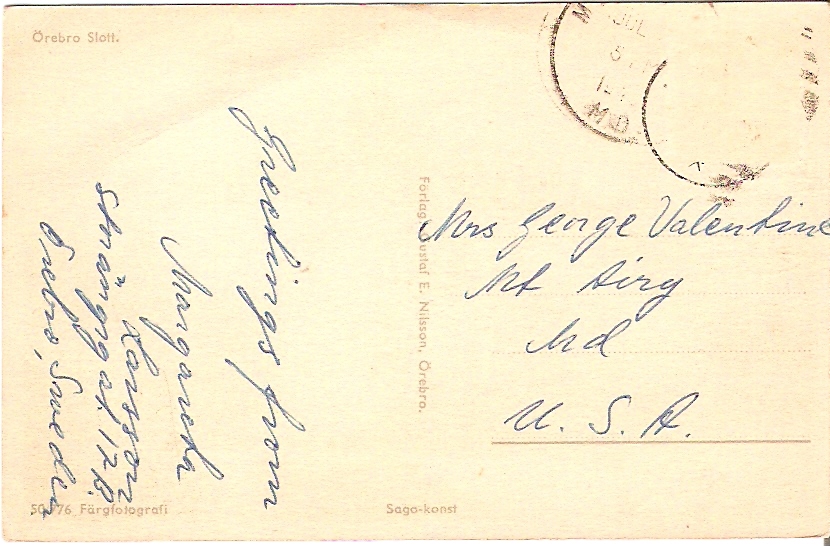 Örebro Slott.
Greetings from
Margareta
Larsson
Strängg at. 17 B
Örebro, Sweden
Förlag: Gustaf E. Nilsson, Örebro.
Mrs George Valentine
Mt Airy
Md
U. S. A.
Färgfotografi
Sago-konst